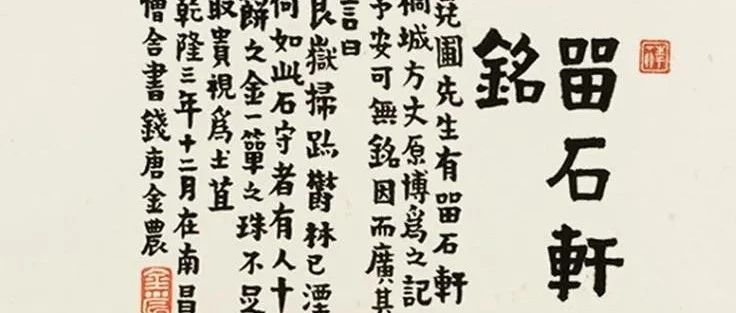 畱石軒
銘
圃先生有畱石軒
桐城方丈原博為之記
予安可無銘因而廣其
言曰
艮嶽掃跡鬱林已湮
何如此石守者有人十
餅之金一簞之珠不足
取貴視爲土苴
乾隆三年十二月在南昌
僧舍書錢唐金農